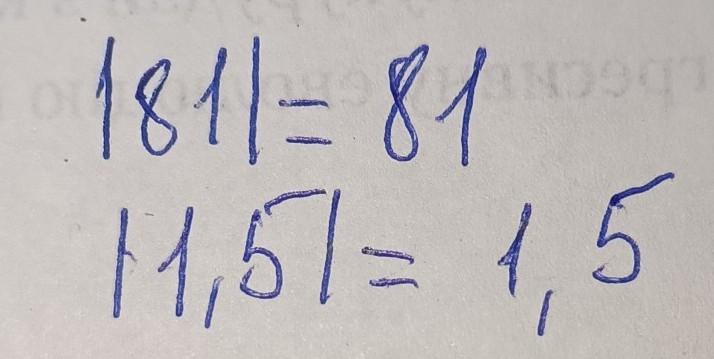 |81| = 81
|-1,5| = 1,5